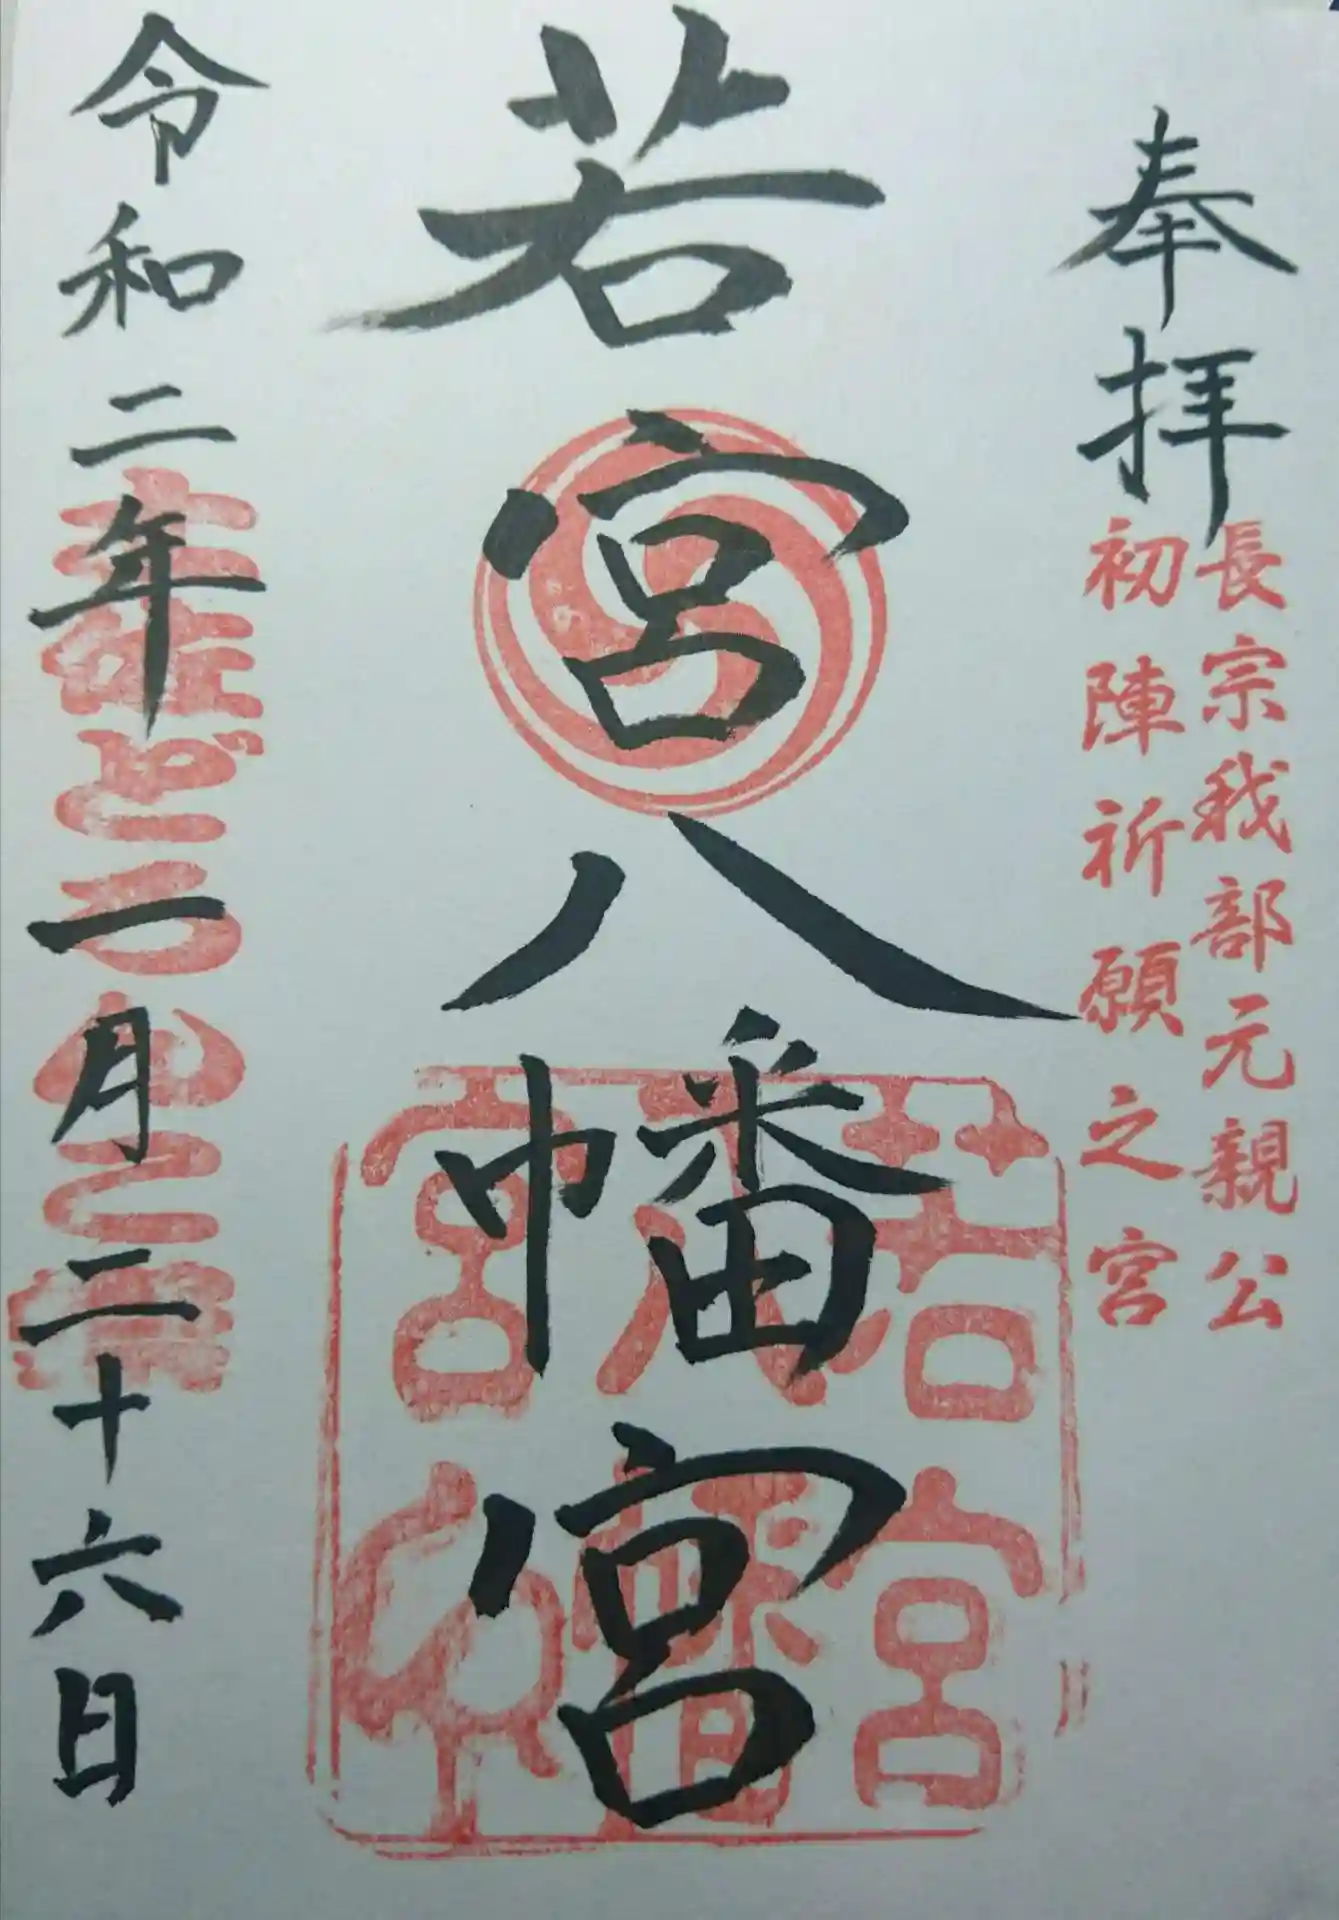 奉拝
長宗我部元親公
初陣祈願之宮
若宮八幡宮
若宮
八幡
宮印
令和二年一月二十六日